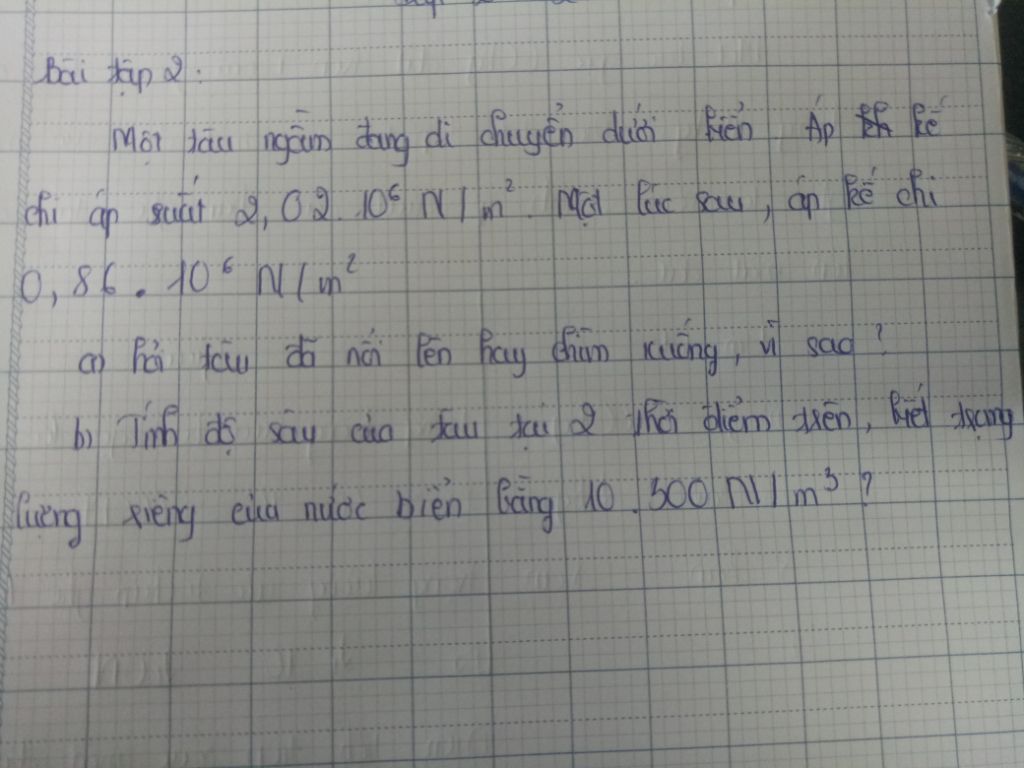 Bài tập 2:
Một tàu ngầm đang di chuyển dưới biển Áp kế
chỉ áp suất 2,02.10⁶ N/m². Một lúc sau, áp kế chỉ
0,86.10⁶ N/m²
a) hỏi tàu đã nổi lên hay chìm xuống, vì sao?
b) Tính độ sâu của tàu tại 2 thời điểm trên, biết trọng
lượng riêng của nước biển bằng 10.300 N/m³?